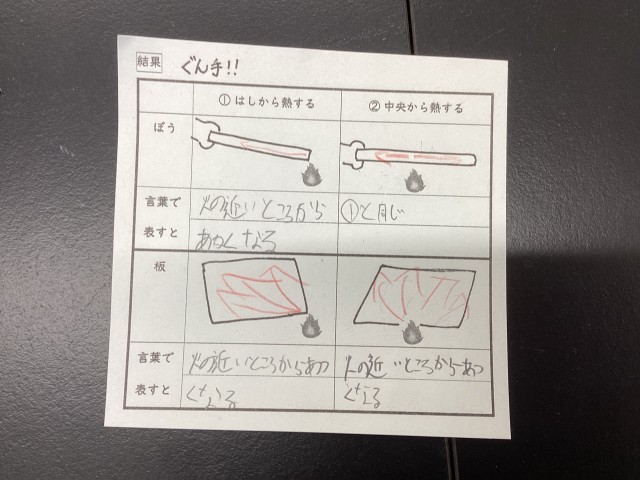 結果 ぐん手!!
① はしから熱する ② 中央から熱する
ぼう
言葉で 表すと
火の近いところから
あつくなる
①と同じ
板
言葉で 表すと
火の近いところからあつ
くなる
火の近いところからあつ
くなる